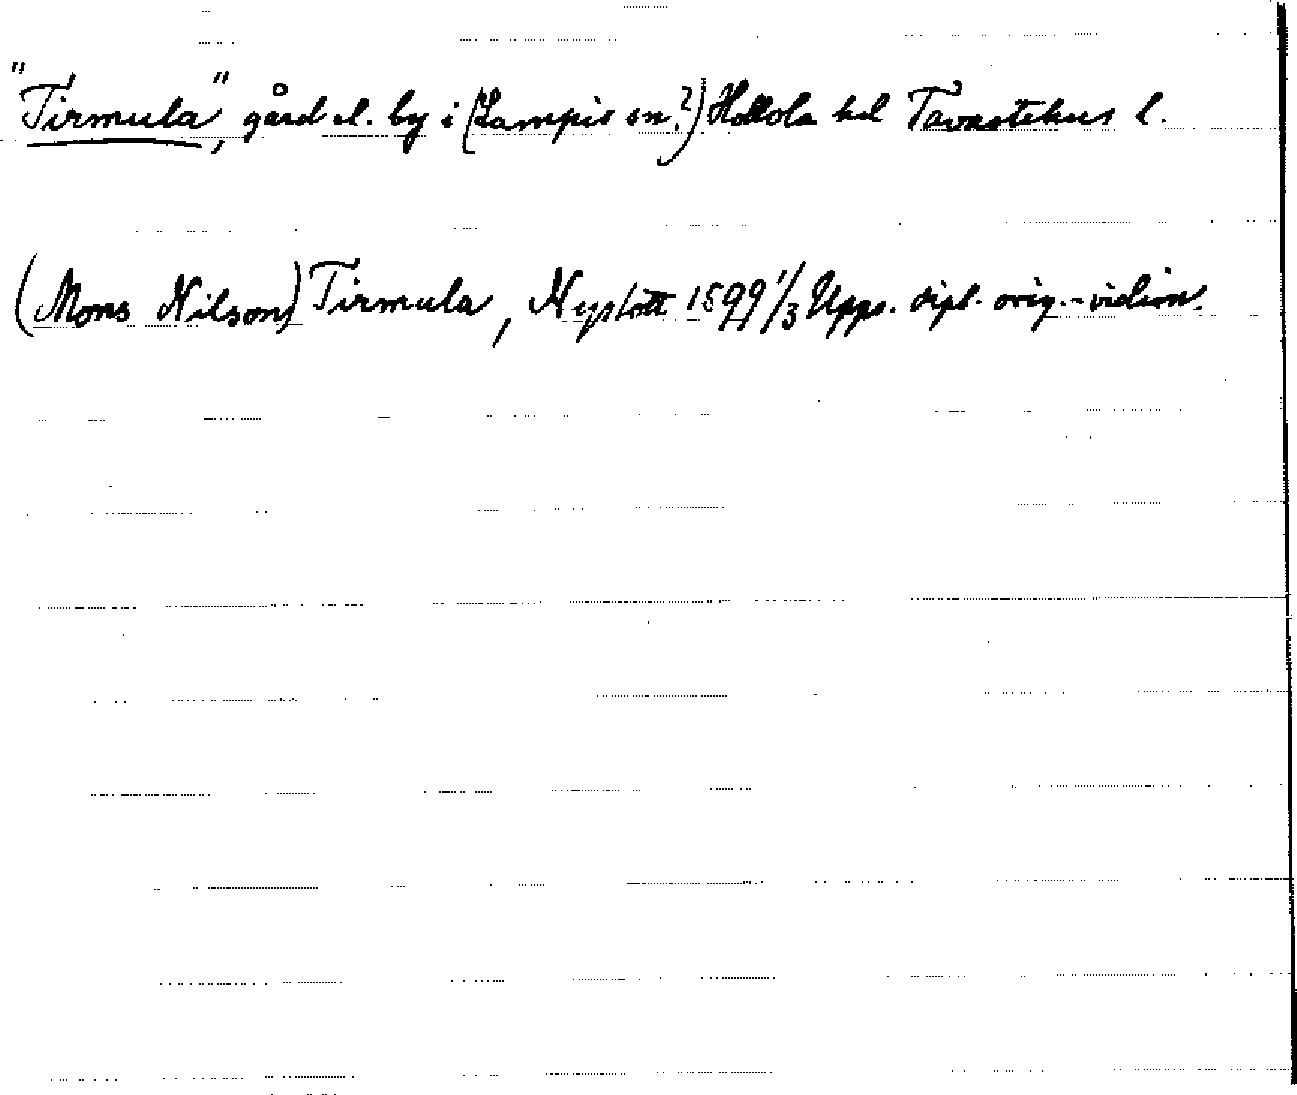 "Tirmula", gård el. by i (Lampis sn.?) Hollola hd Tavastehus l.
(Mons Nilson) Tirmula, Nyslott 1599 1/3 Upps. dipl. orig.-vidim.